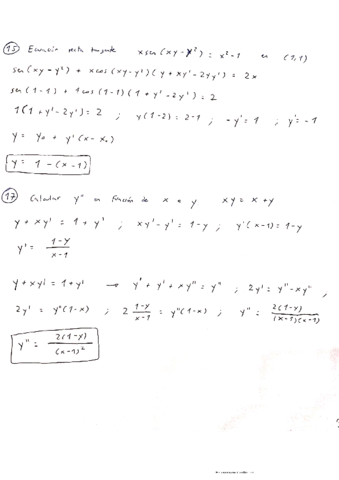 15) Ecuación recta tangente x sen (xy - y²) = x² - 1 en (1,1)
sen (xy - y²) + x cos (xy - y²) (y + xy' - 2yy') = 2x
sen (1-1) + 1 cos (1-1) (1 + y' - 2y') = 2
1 (1 + y' - 2y') = 2 ; y(1-2) = 2-1 ; -y' = 1 ; y' = -1
y = y₀ + y' (x - x₀)
y = 1 - (x - 1)
17) Calcular y'' en función de x e y xy = x + y
y + xy' = 1 + y' ; xy' - y' = 1 - y ; y' (x-1) = 1 - y
y' = (1-y)/(x-1)
y + xy' = 1 + y' → y' + y' + xy'' = y'' ; 2y' = y'' - xy'' ;
2y' = y'' (1-x) ; 2 (1-y)/(x-1) = y'' (1-x) ; y'' = 2(1-y)/((x-1)(x-1))
y'' = 2(1-y)/(x-1)²